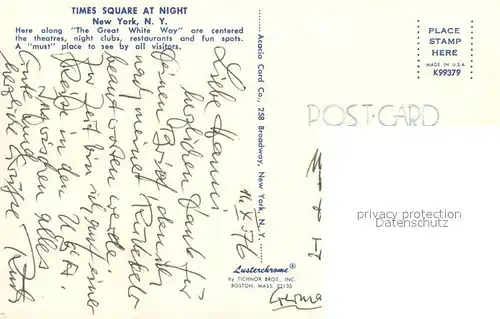 TIMES SQUARE AT NIGHT
New York, N. Y.
Here along "The Great White Way" are centered
the theatres, night clubs, restaurants and fun spots.
A "must" place to see by all visitors.
PLACE
STAMP
HERE
MADE IN U.S.A
K99379
POST CARD
Acacia Card Co., 258 Broadway, New York, N. Y.
Liebe Hanni
herzlichen Dank für
deinen Brief, den ich
nach meiner Rückkehr
beantworten werde.
Zur Zeit bin ich auf einer
Reise in den USA.
Inzwischen alles
Gute und
herzliche Grüße
Ruth
privacy protection
Datenschutz
Lusterchrome®
by TICHNOR BROS., INC.
BOSTON, MASS. 02130
Germa